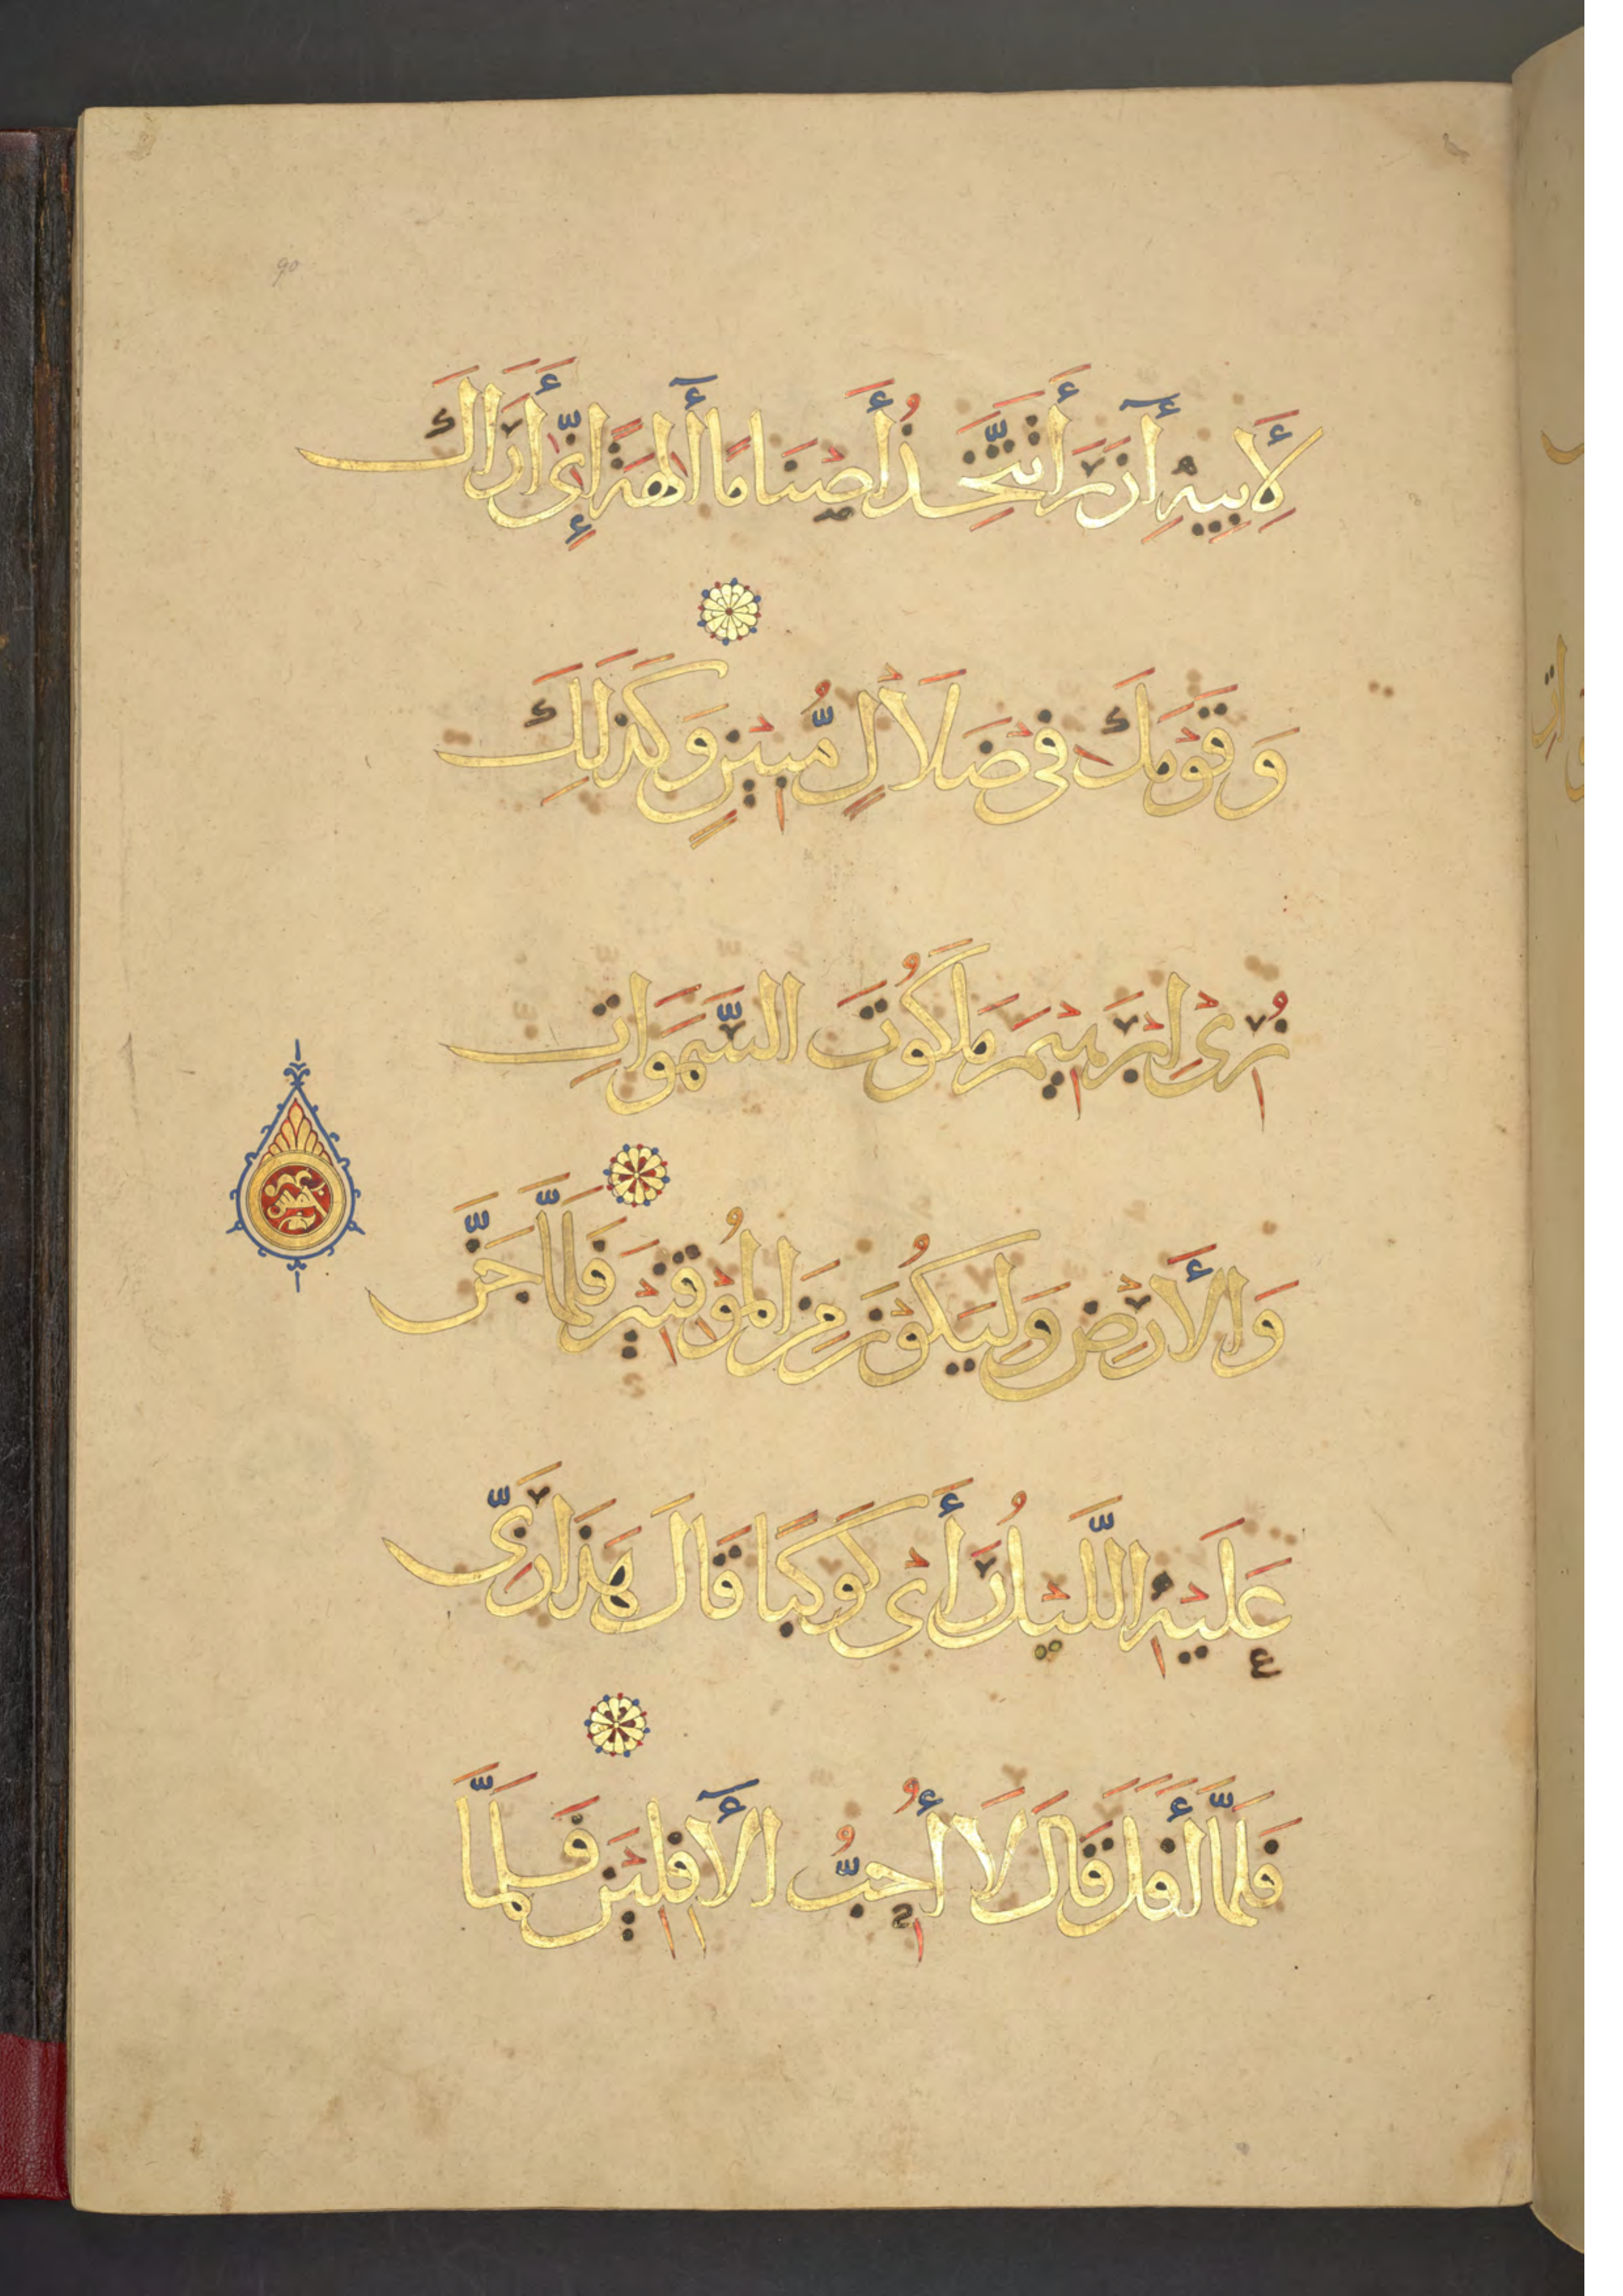 90
لِأَبِيهِ أٰزَرَ أَتَتَّخِذُ أَصْنَامًا أٰلِهَةً إِنِّي أَرَاكَ
وَقَوْمَكَ فِي ضَلَالٍ مُّبِينٍ وَكَذَلِكَ
نُرِي إِبْرَهِيمَ مَلَكُوتَ السَّمَوَاتِ
وَالْأَرْضِ وَلِيَكُونَ مِنَ الْمُوقِنِينَ فَلَمَّا جَنَّ
عَلَيْهِ اللَّيْلُ رَأَى كَوْكَبًا قَالَ هَذَا رَبِّي
فَلَمَّا أَفَلَ قَالَ لَا أُحِبُّ الْآفِلِينَ فَلَمَّا